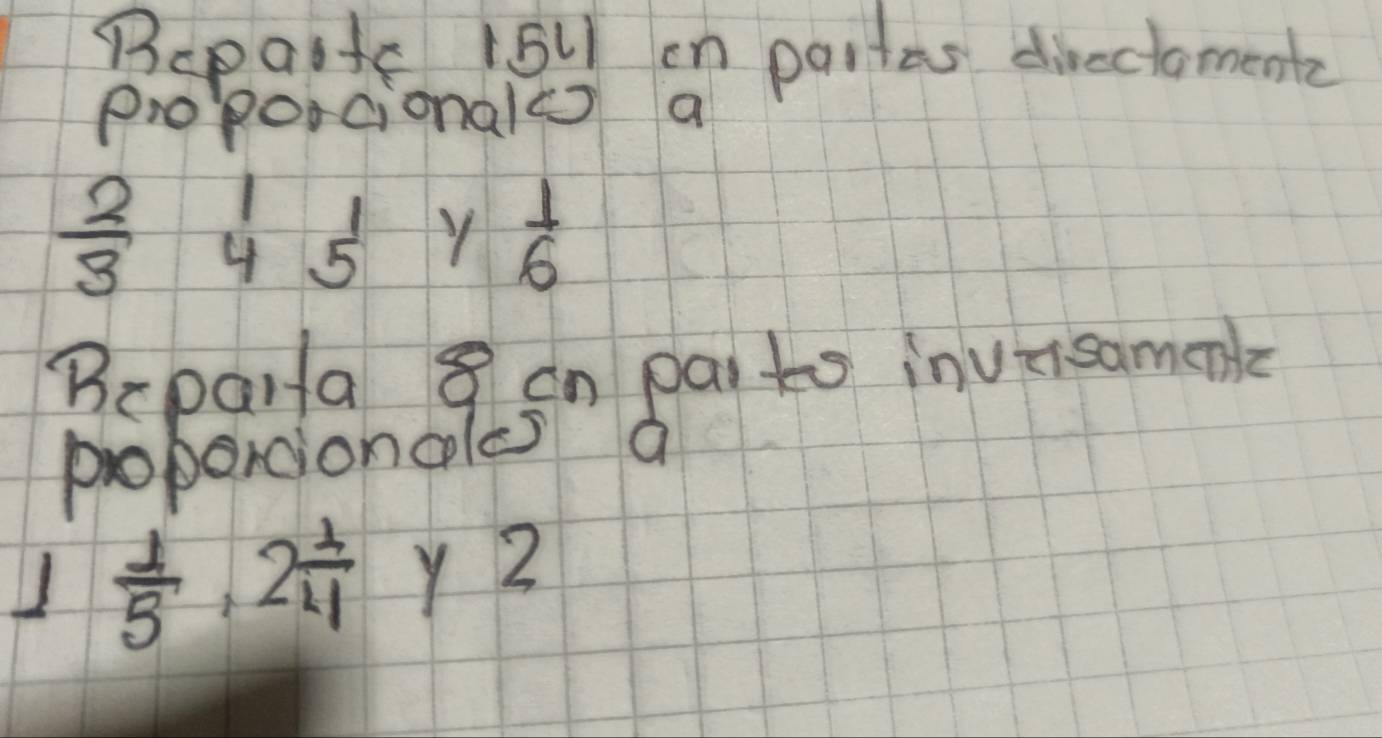 Reparte 154 en partes directamente
proporcionales a
2/3 1/4 1/5 y 1/6
Reparta 8 en partes inversamente
proporcionales a
1 1/5, 2 1/4 y 2